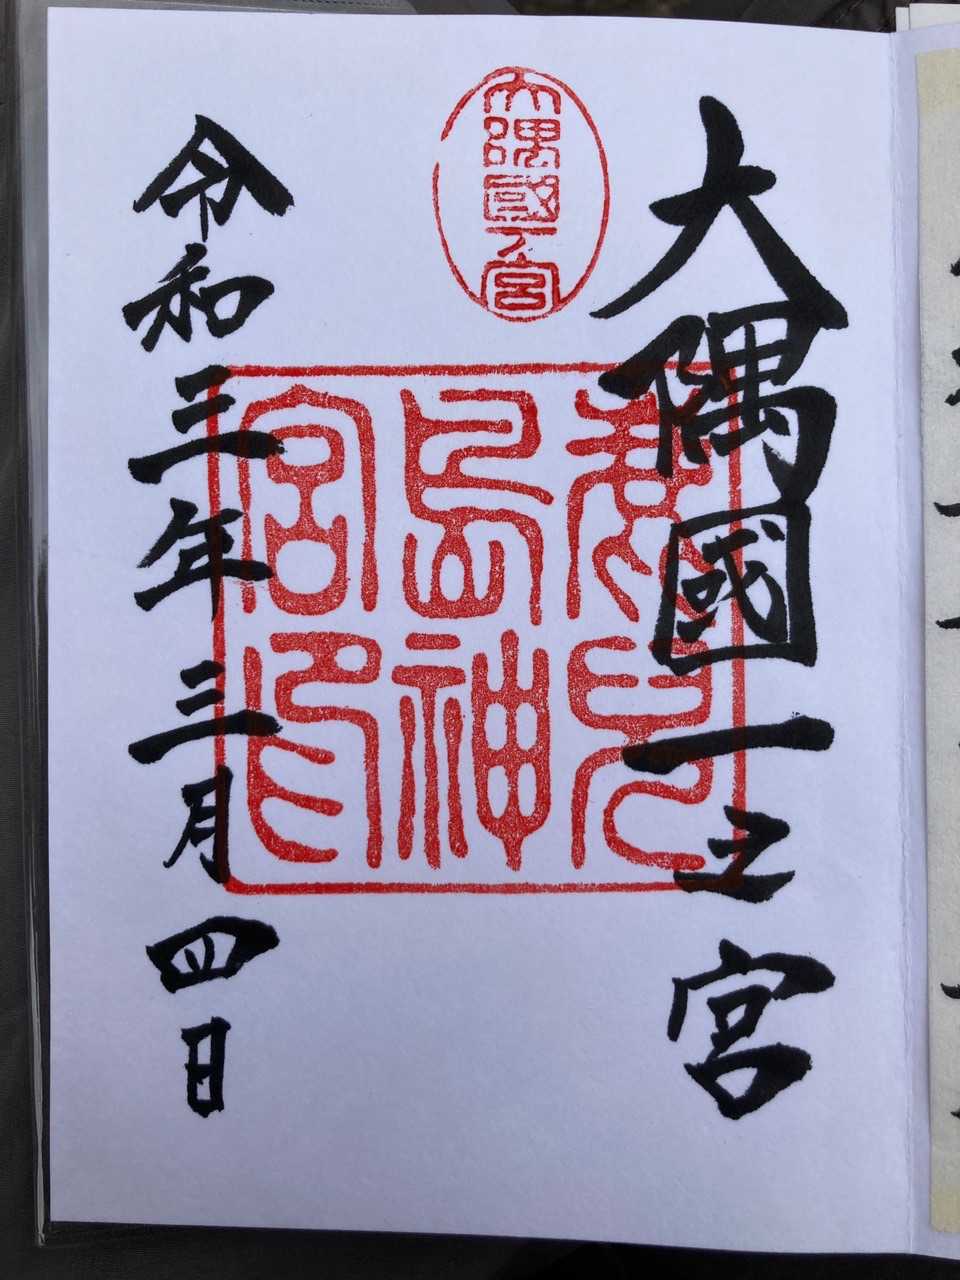 大隅國一之宮
大隅國一宮
鹿兒
島神
宮印
令和三年三月四日